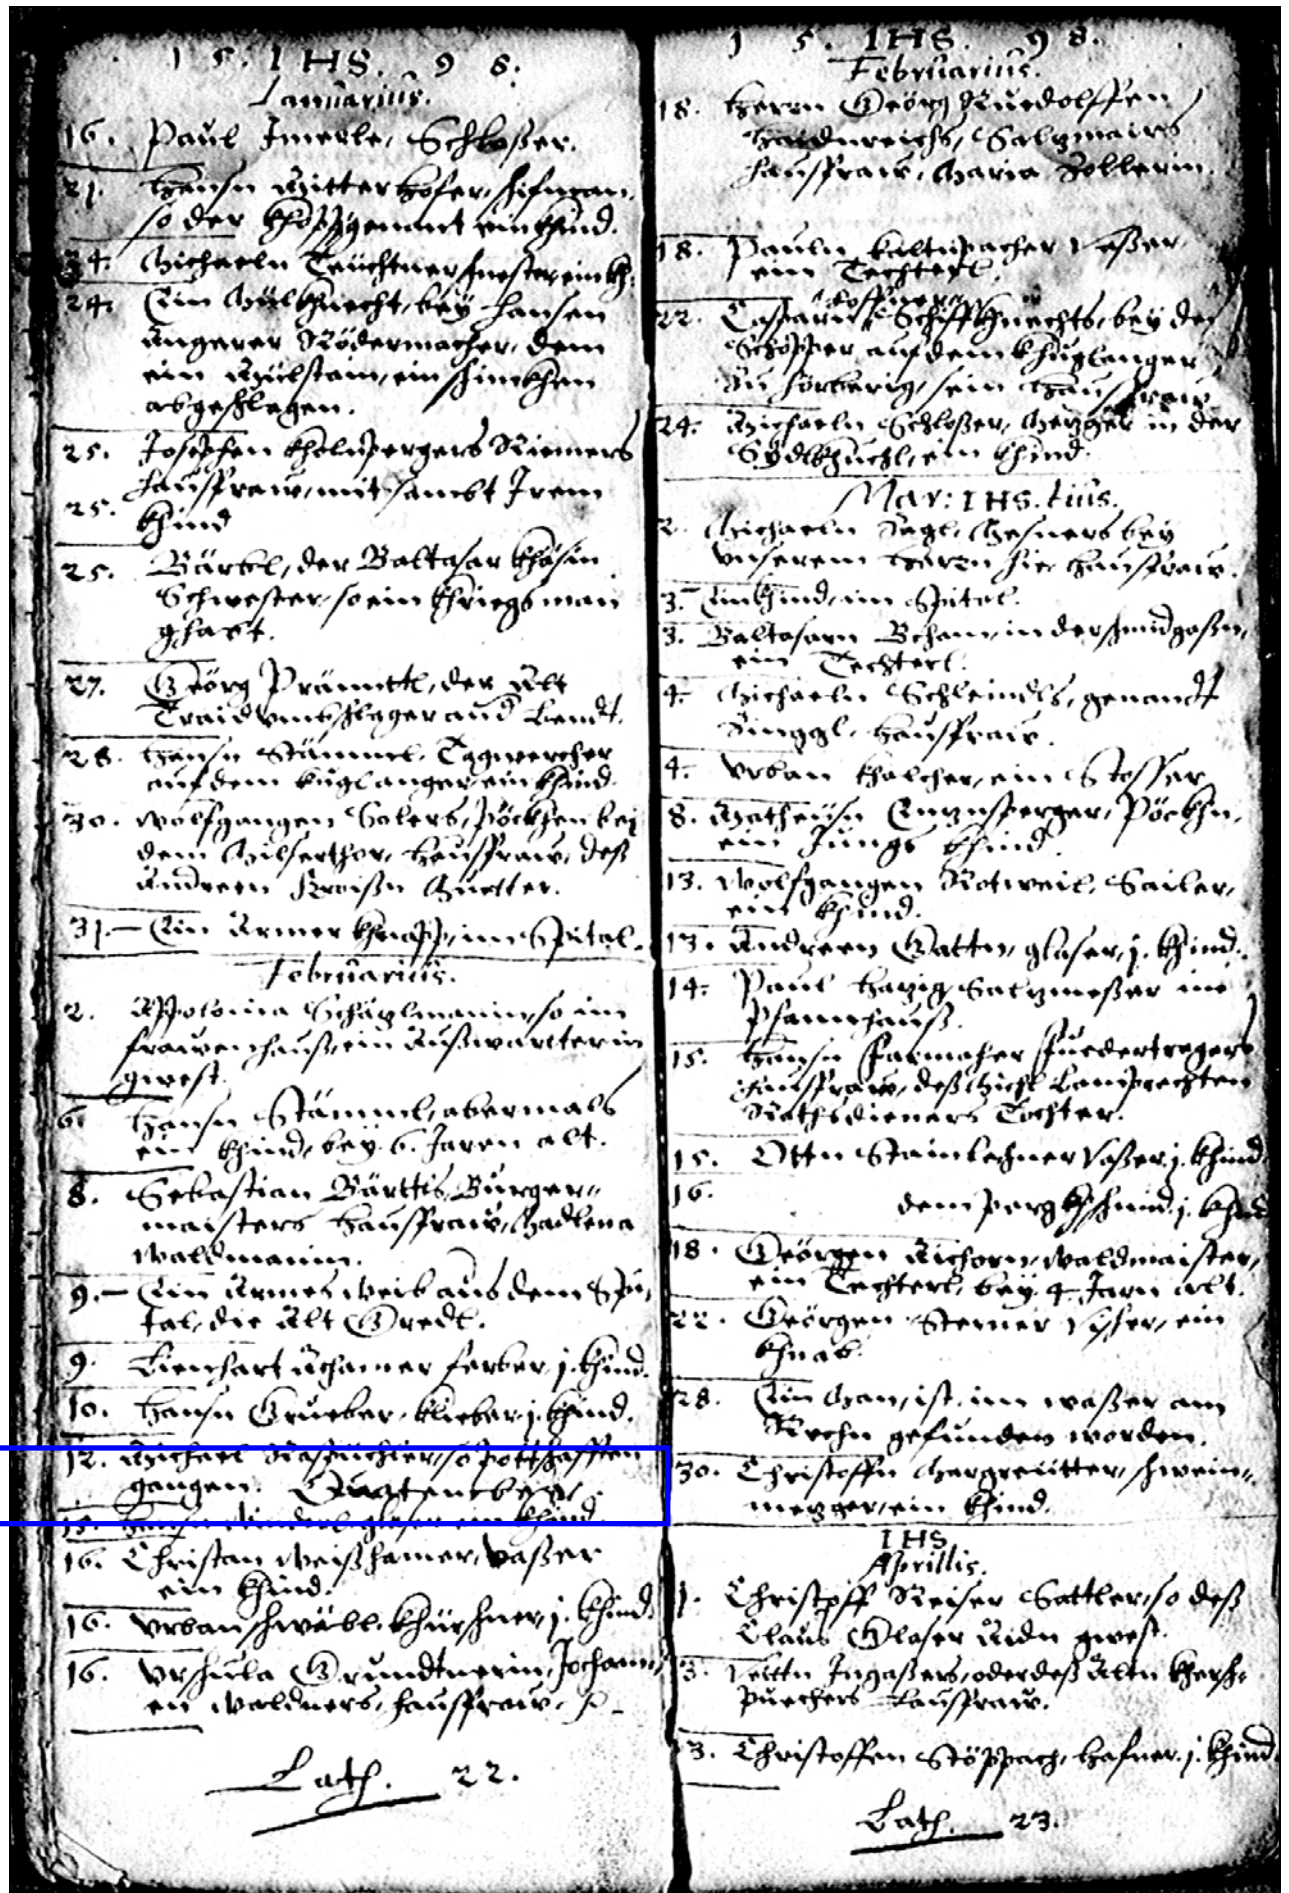 1 5. IHS. 9 8.
Januarius.
16. Paul Imerle, Schloßer.
21. Hansn Mitterhofer, schifman,
so der khöppf genant ein khind.
24. Michaeln ein kh.
24. Ein Mülkhnecht, bey Hansen
Angerer Rödermacher, dem
ein Mülstain, ein schinkhen
abgeschlagen.
25. Josephen kholnpergers Riemers
25. hausfraw, mit sambt Irem
khind
25. Bärbl, der Baltasar khäsin
Schwester, so ein khriegsman
ghabt.
27. Geörg Prämittl, der Alt
Traid auf Lendt.
28. Hansn Stämml, Tagwercher
auf dem kuglanger, ein khind.
30. Wolfgangen Salers, Pöckhen bei
dem Milserthor, hausfraw, deß
Andreen Kroißn Muetter.
31. Ein Armer khnapp, im Spital.
Februarius.
2. Appolonia so im
frawenhauß, ein Außwartterin
gwest.
6. Hansn Stämml, abermals
ein khind, bey 6. Jaren alt.
8. Sebastian Bärttis, Burger-
maisters hausfraw, Madlena
Waldmanin.
9. Ein Armes Weib aus dem Spi-
tal, die Alt Gredt.
9. Lienhart Achamer farber, j. khind.
10. Hansn Grueber, klieber, j. khind.
12. Michael so pottschafften
gangen.
13. Hansn glaser ein khind.
16. Christan Weißhamer, Vaßer
ein khind.
16. Urban schwäbl, khürschner, j. khind.
16. Urschula Grundtnerin, Johann-
en Waldners, hausfraw.
Lath. 22.
1 5. IHS. 9 8.
Februarius.
18. Herrn Geörg Ruedolffen
Haidnreichs, Salzmairs
hausfraw, Maria Zollerin.
18. Pauln kaltnpacher Vaßer,
ein Techterl.
22. Casparn Schiffkhnechts, bey der
Schopper auf dem khuglanger
zu hörberig, sein hausfraw
24. Michaeln Schloßer, Mezger in der
Sydlkhuchl, ein khind.
Mar: IHS. tius.
2. Michaeln Nagl, Mesners bey
unserem Herrn hie hausfraw.
3. Ein khind, im Spital.
3. Baltasarn Beham, in der schmidgaßn,
ein Techterl.
4. Michaeln Schleindls, genandt
Singgl, hausfraw.
4. Urban khalcher, ein Stosser
8. Matheusn Einznsperger, Pöckhn,
ein Jungs khind.
13. Wolfgangen Rotweil, Sailer,
ein khind.
13. Andreen Gattn, glaser, j. khind.
14. Paul Hazig Salzmeßer im
Pfannhauß.
15. Hansn fuedertragers
hausfraw, deß Michl Lamprechten
Rathsdieners Tochter.
15. Ottn Stainlechner Vaßer, j. khind
16. dem pergkhschmid. j. khind
18. Geörgen Aichorn, Waldmaister,
ein Techterl, bey 4. Jarn alt.
22. Geörgen Sterner ein
khnab.
28. Ein Man, ist im waßer am
Rechn gefunden worden.
30. Christoffn Margreutter, schwein-
mezger, ein khind.
IHS
Aprillis.
1. Christoff Reiser Sattler, so deß
Claus Glaser Aidn gwest.
3. Veittn Ingaßers, oder deß Altn khersch-
puechers hausfraw.
13. Christoffen Stöppach, hafner. j. khind
Lath. 23.